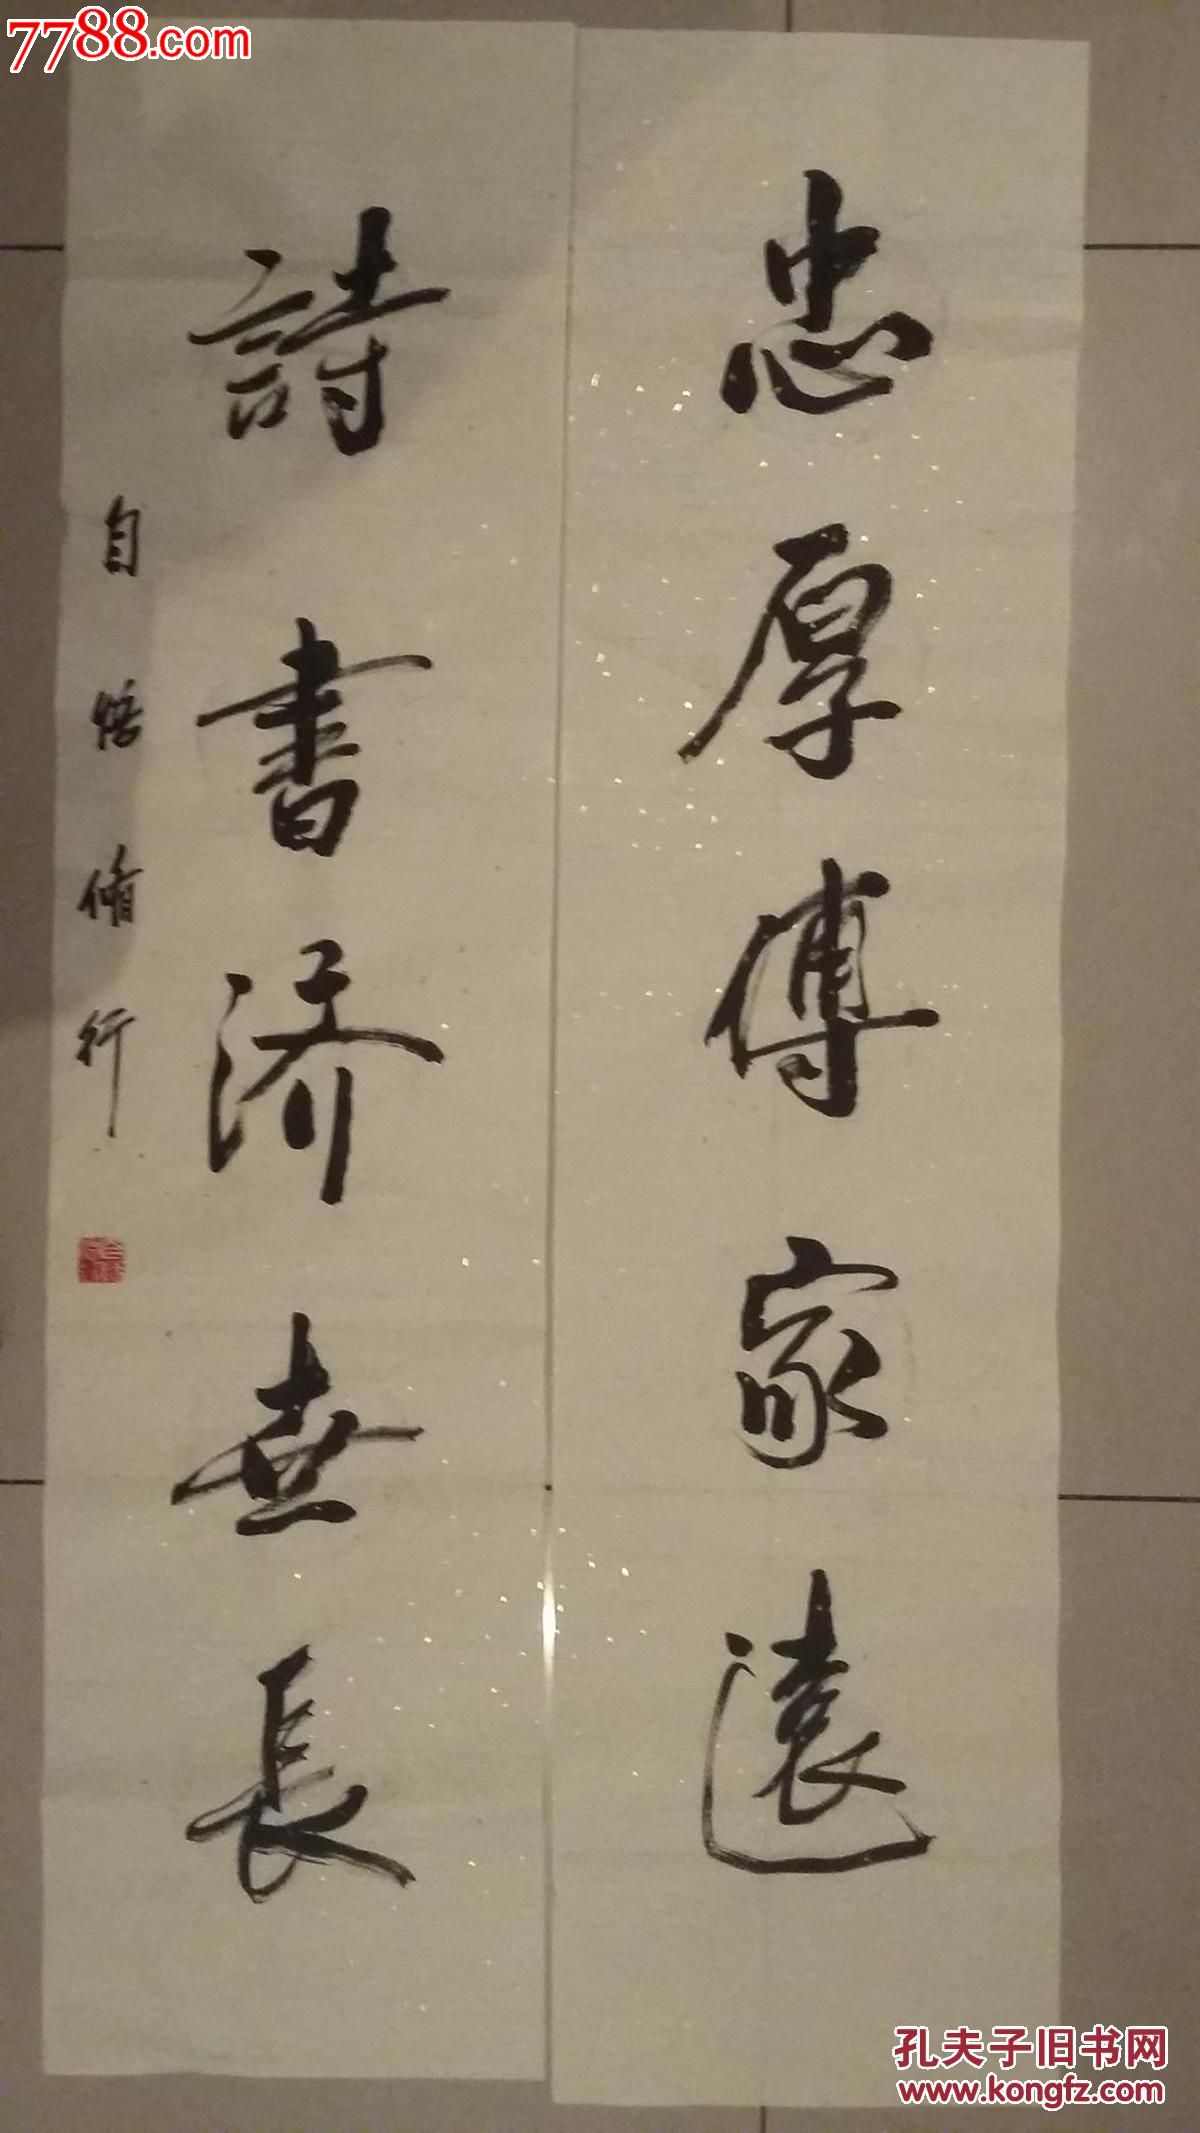 7788.com
忠厚傳家遠
詩書济世長
自悟脩行
孔夫子旧书网
www.kongfz.com